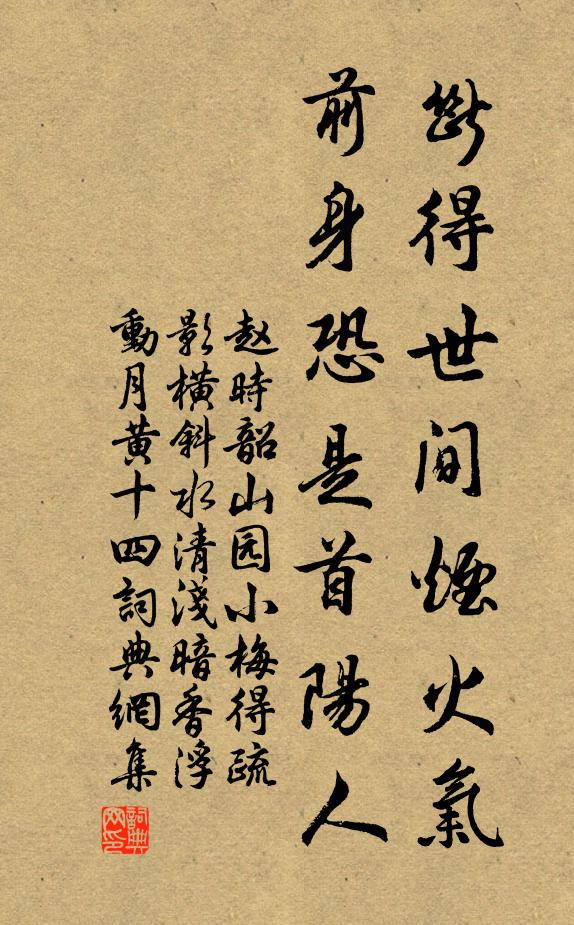 斷得世間煙火氣
前身恐是首陽人
赵時韶山园小梅得疏
影橫斜水清淺暗香浮
動月黄十四詞典網集
詞典
网印